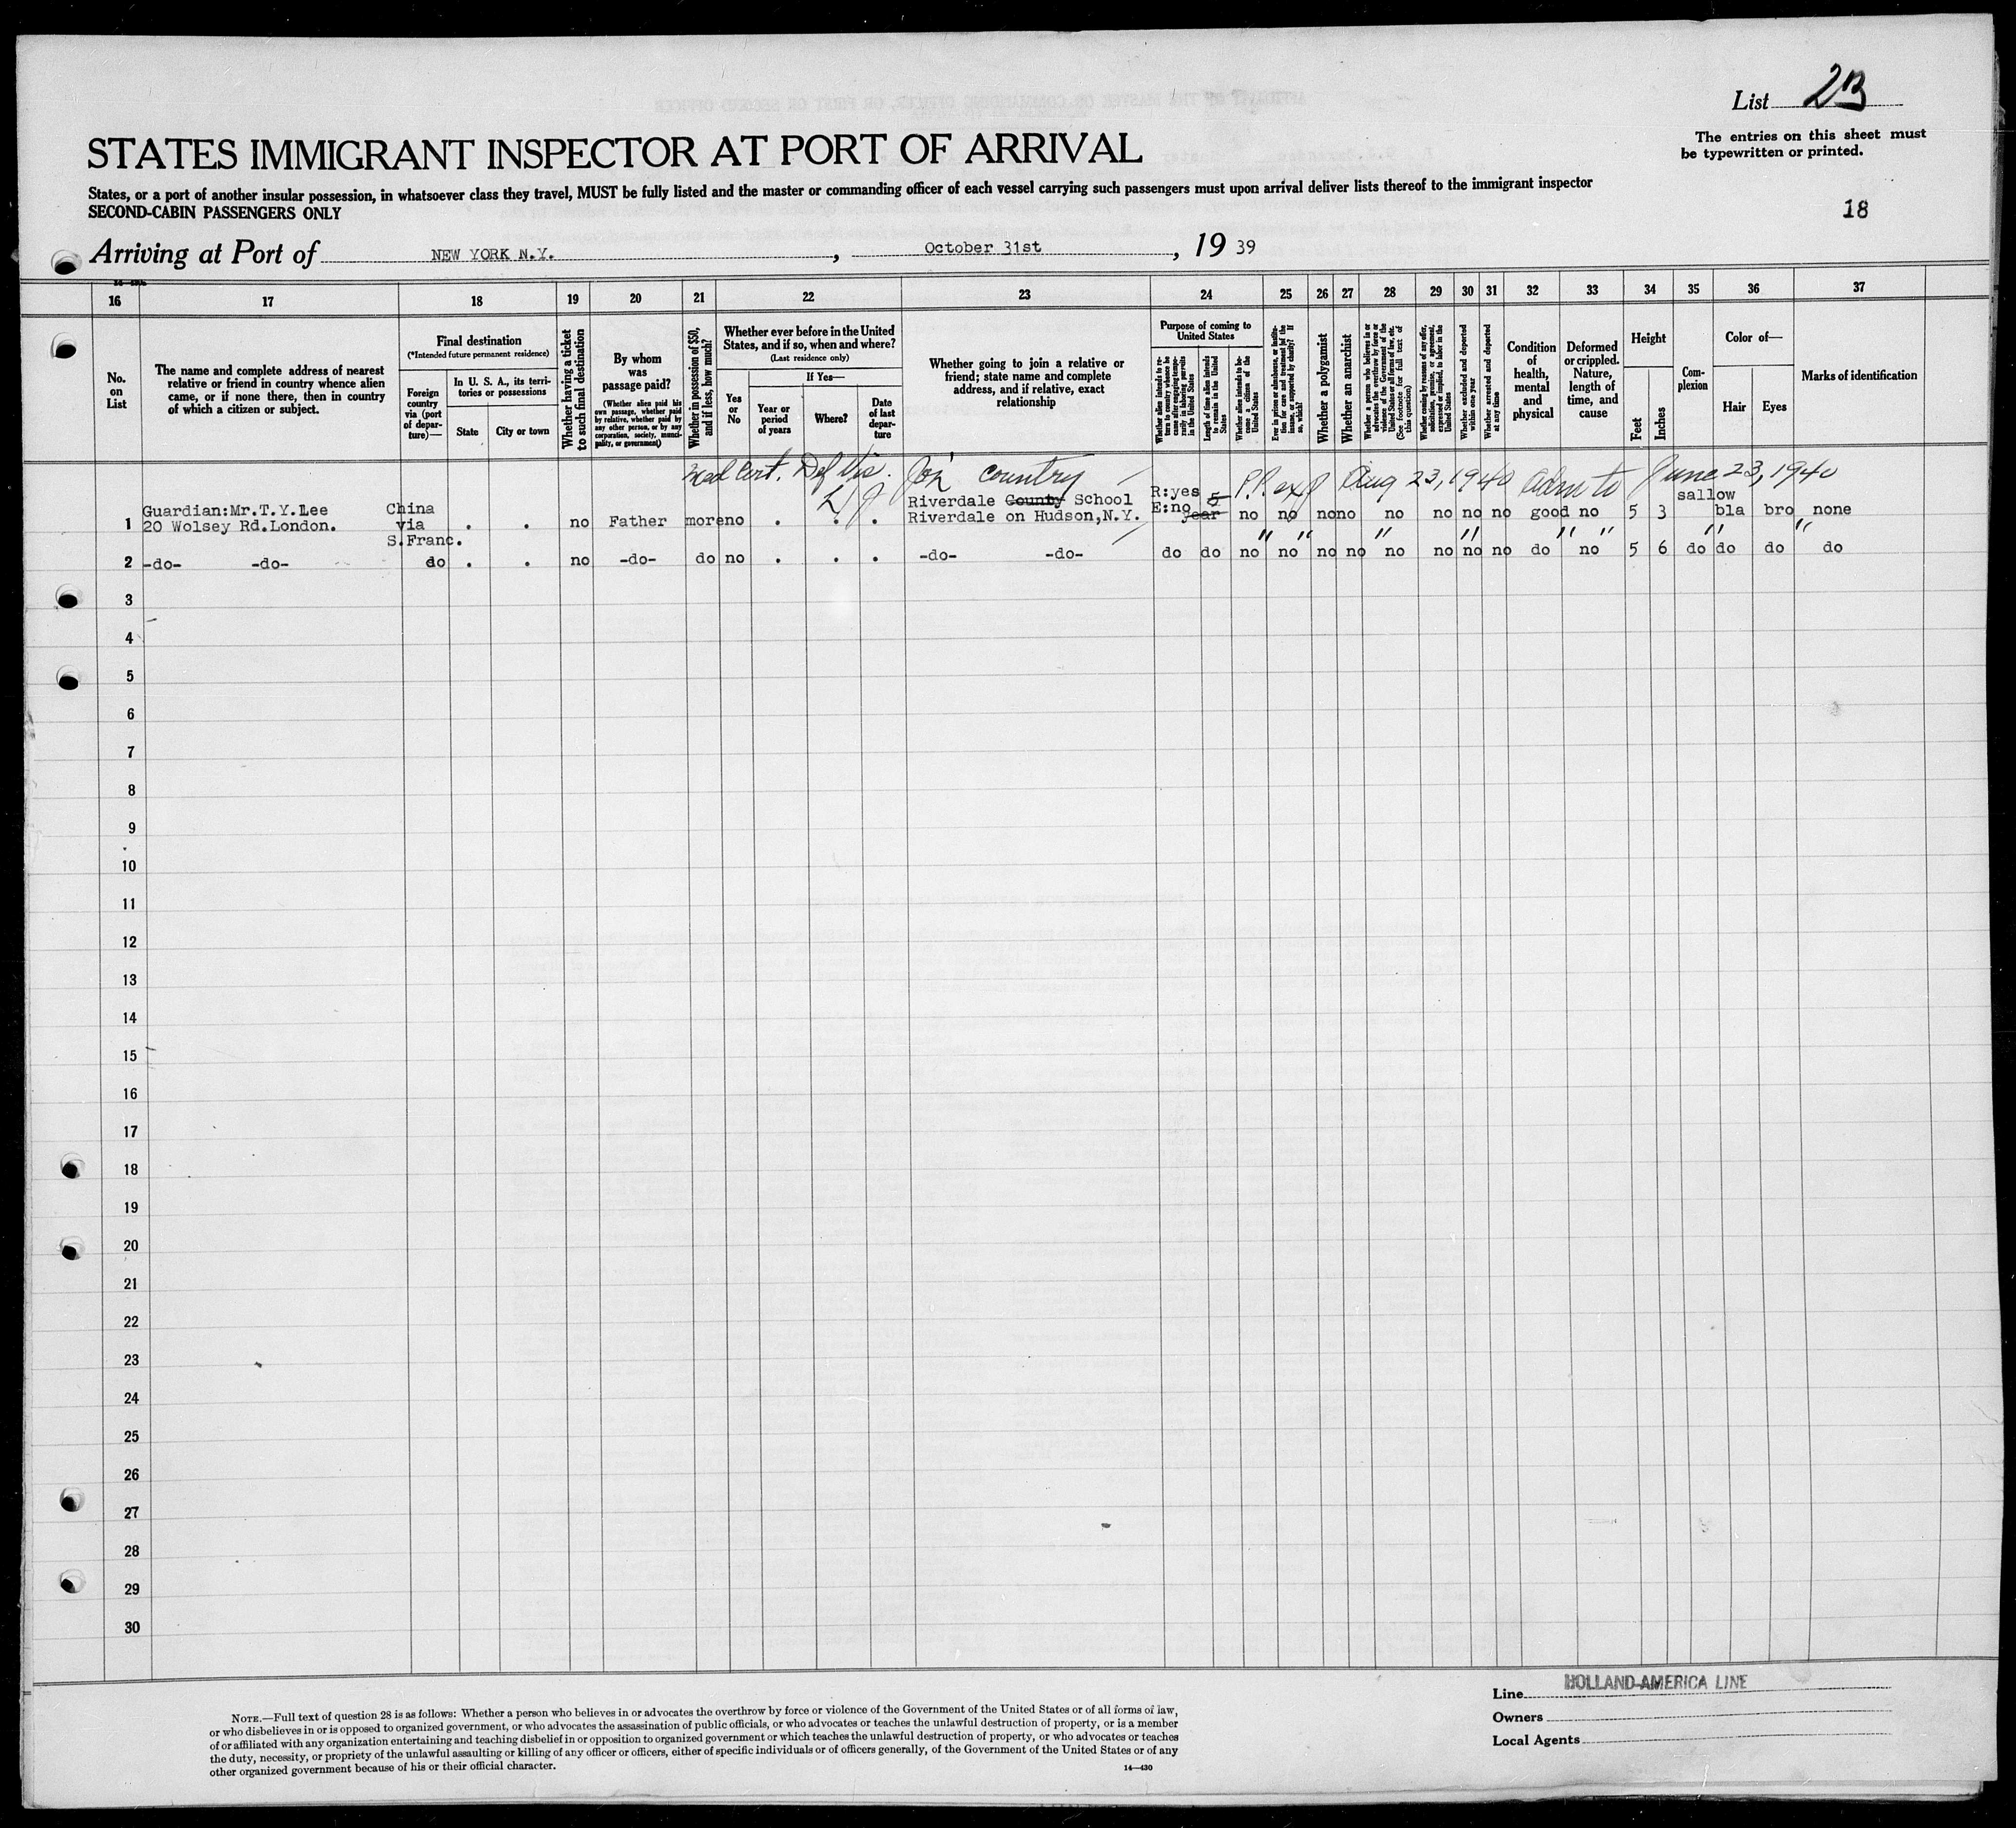 List 2B
The entries on this sheet must
be typewritten or printed.
STATES IMMIGRANT INSPECTOR AT PORT OF ARRIVAL
States, or a port of another insular possession, in whatsoever class they travel, MUST be fully listed and the master or commanding officer of each vessel carrying such passengers must upon arrival deliver lists thereof to the immigrant inspector
SECOND-CABIN PASSENGERS ONLY
18
Arriving at Port of NEW YORK N.Y. , October 31st , 19 39
16 17 18 19 20 21 22 23 24 25 26 27 28 29 30 31 32 33 34 35 36 37
No.
on
List
The name and complete address of nearest
relative or friend in country whence alien
came, or if none there, then in country
of which a citizen or subject.
Final destination
(*Intended future permanent residence)
Foreign
country
via (port
of depar-
ture)—
In U. S. A., its terri-
tories or possessions
State
City or town
Whether having a ticket
to such final destination
By whom
was
passage paid?
(Whether alien paid his
own passage, whether paid
by relative, whether paid by
any other person, or by any
corporation, society, munici-
pality, or government)
Whether in possession of $50,
and if less, how much?
Whether ever before in the United
States, and if so, when and where?
(Last residence only)
Yes
or
No
If Yes—
Year or
period
of years
Where?
Date
of last
depar-
ture
Whether going to join a relative or
friend; state name and complete
address, and if relative, exact
relationship
Purpose of coming to
United States
Whether alien intends to re-
turn to country whence he
came after engaging tempo-
rarily in laboring pursuits
in the United States
Length of time alien intends
to remain in the United
States
Whether alien intends to be-
come a citizen of the
United States
Ever in prison or almshouse, or institu-
tion for care and treatment of the
insane, or supported by charity? If
so, which?
Whether a polygamist
Whether an anarchist
Whether a person who believes in or
advocates the overthrow by force or
violence of the Government of the
United States or all forms of law, etc.
(See footnote for full text of
this question)
Whether coming by reason of any offer,
solicitation, promise, or agreement,
expressed or implied, to labor in the
United States
Whether excluded and deported
within one year
Whether arrested and deported
at any time
Condition
of
health,
mental
and
physical
Deformed
or crippled.
Nature,
length of
time, and
cause
Height
Feet
Inches
Com-
plexion
Color of—
Hair
Eyes
Marks of identification
Med Cert. Def Vis. country P.P. exp Aug 23, 1940 Adm to June 23, 1940
Guardian:Mr.T.Y.Lee China Riverdale County School R:yes 5 sallow
1 20 Wolsey Rd.London. via . . no Father more no . . . Riverdale on Hudson,N.Y. E:no year no no no no no no no no good no 5 3 bla bro none
S.Franc. " " " " " " " "
2 -do- -do- do . . no -do- do no . . . -do- -do- do do no no no no no no no no do no 5 6 do do do do
3
4
5
6
7
8
9
10
11
12
13
14
15
16
17
18
19
20
21
22
23
24
25
26
27
28
29
30
NOTE.—Full text of question 28 is as follows: Whether a person who believes in or advocates the overthrow by force or violence of the Government of the United States or of all forms of law,
or who disbelieves in or is opposed to organized government, or who advocates the assassination of public officials, or who advocates or teaches the unlawful destruction of property, or is a member
of or affiliated with any organization entertaining and teaching disbelief in or opposition to organized government or which teaches the unlawful destruction of property, or who advocates or teaches
the duty, necessity, or propriety of the unlawful assaulting or killing of any officer or officers, either of specific individuals or of officers generally, of the Government of the United States or of any
other organized government because of his or their official character.
14—430
Line HOLLAND-AMERICA LINE
Owners
Local Agents